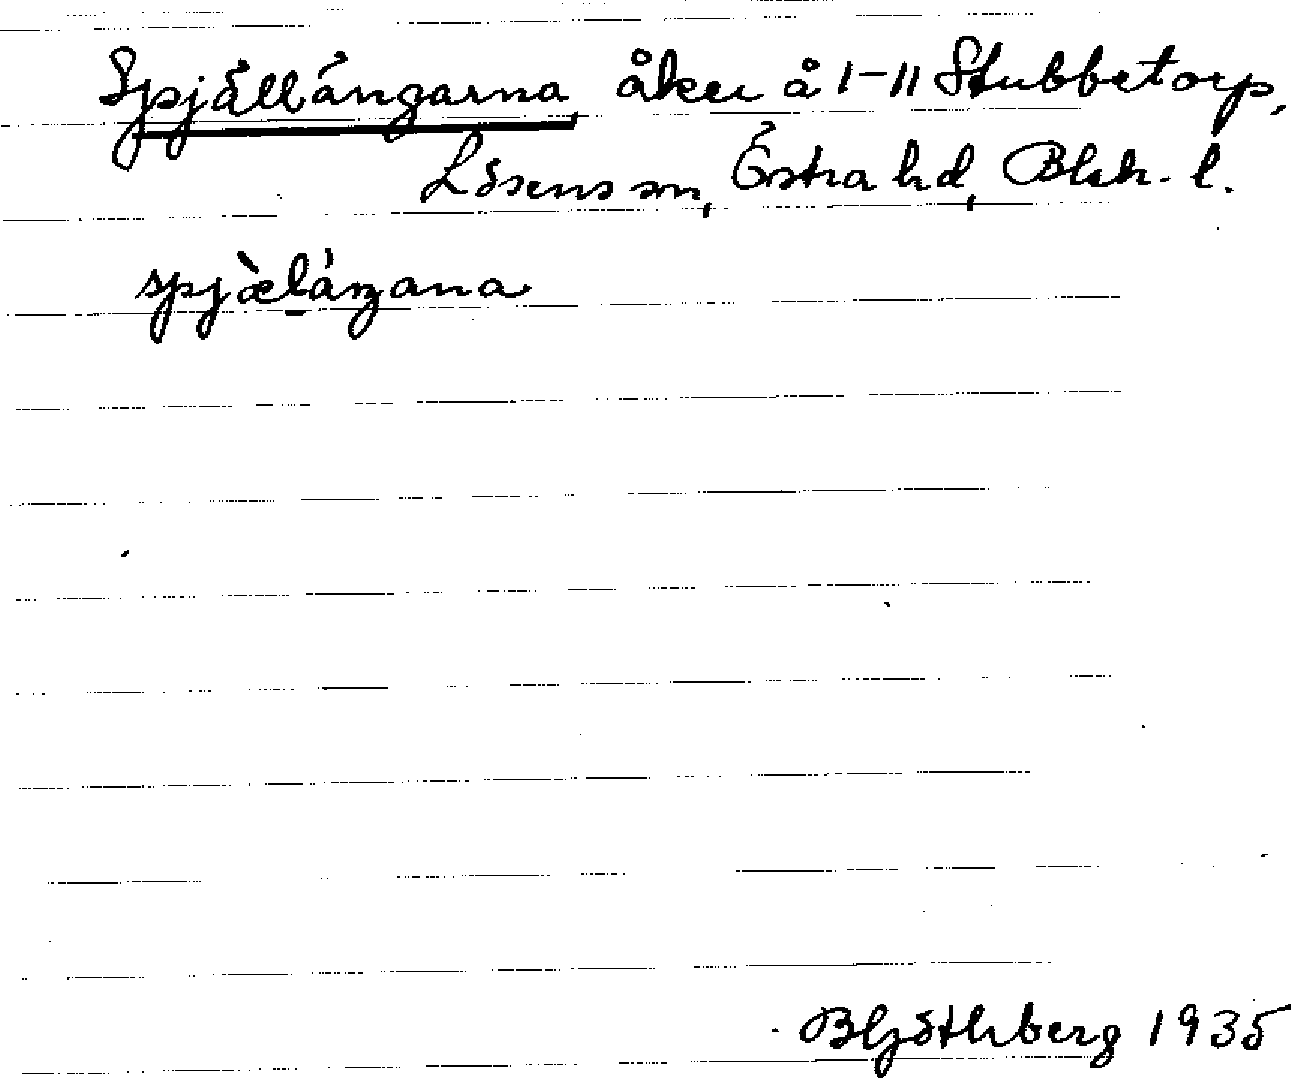 Spjällängarna, åker å 1-11 Stubbetorp,
Lösens sn, Östra hd, Blek. l.
spjæ̀lá̀ŋana
BHjöthberg 1935